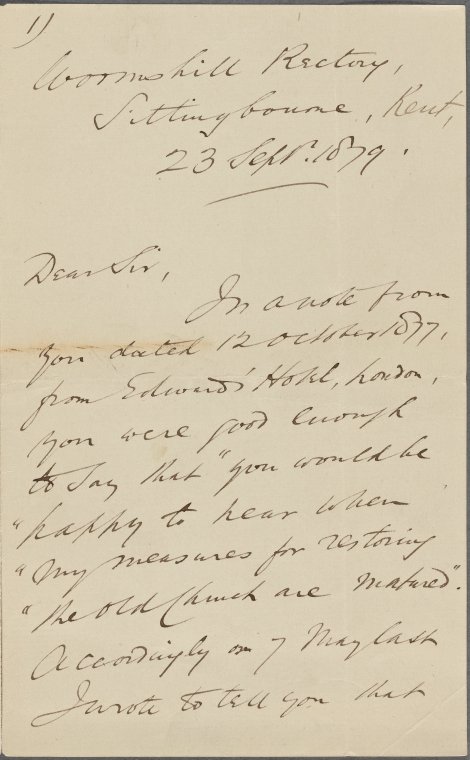 1)
Wormshill Rectory,
Sittingbourne, Kent,
23 Sept. 1879.
Dear Sir,
In a note from
you dated 12 October 1877,
from Edwards' Hotel, London,
you were good enough
to say that "you would be
"happy to hear when
"my measures for restoring
"the old Church are matured".
Accordingly on 7 May last
I wrote to tell you that